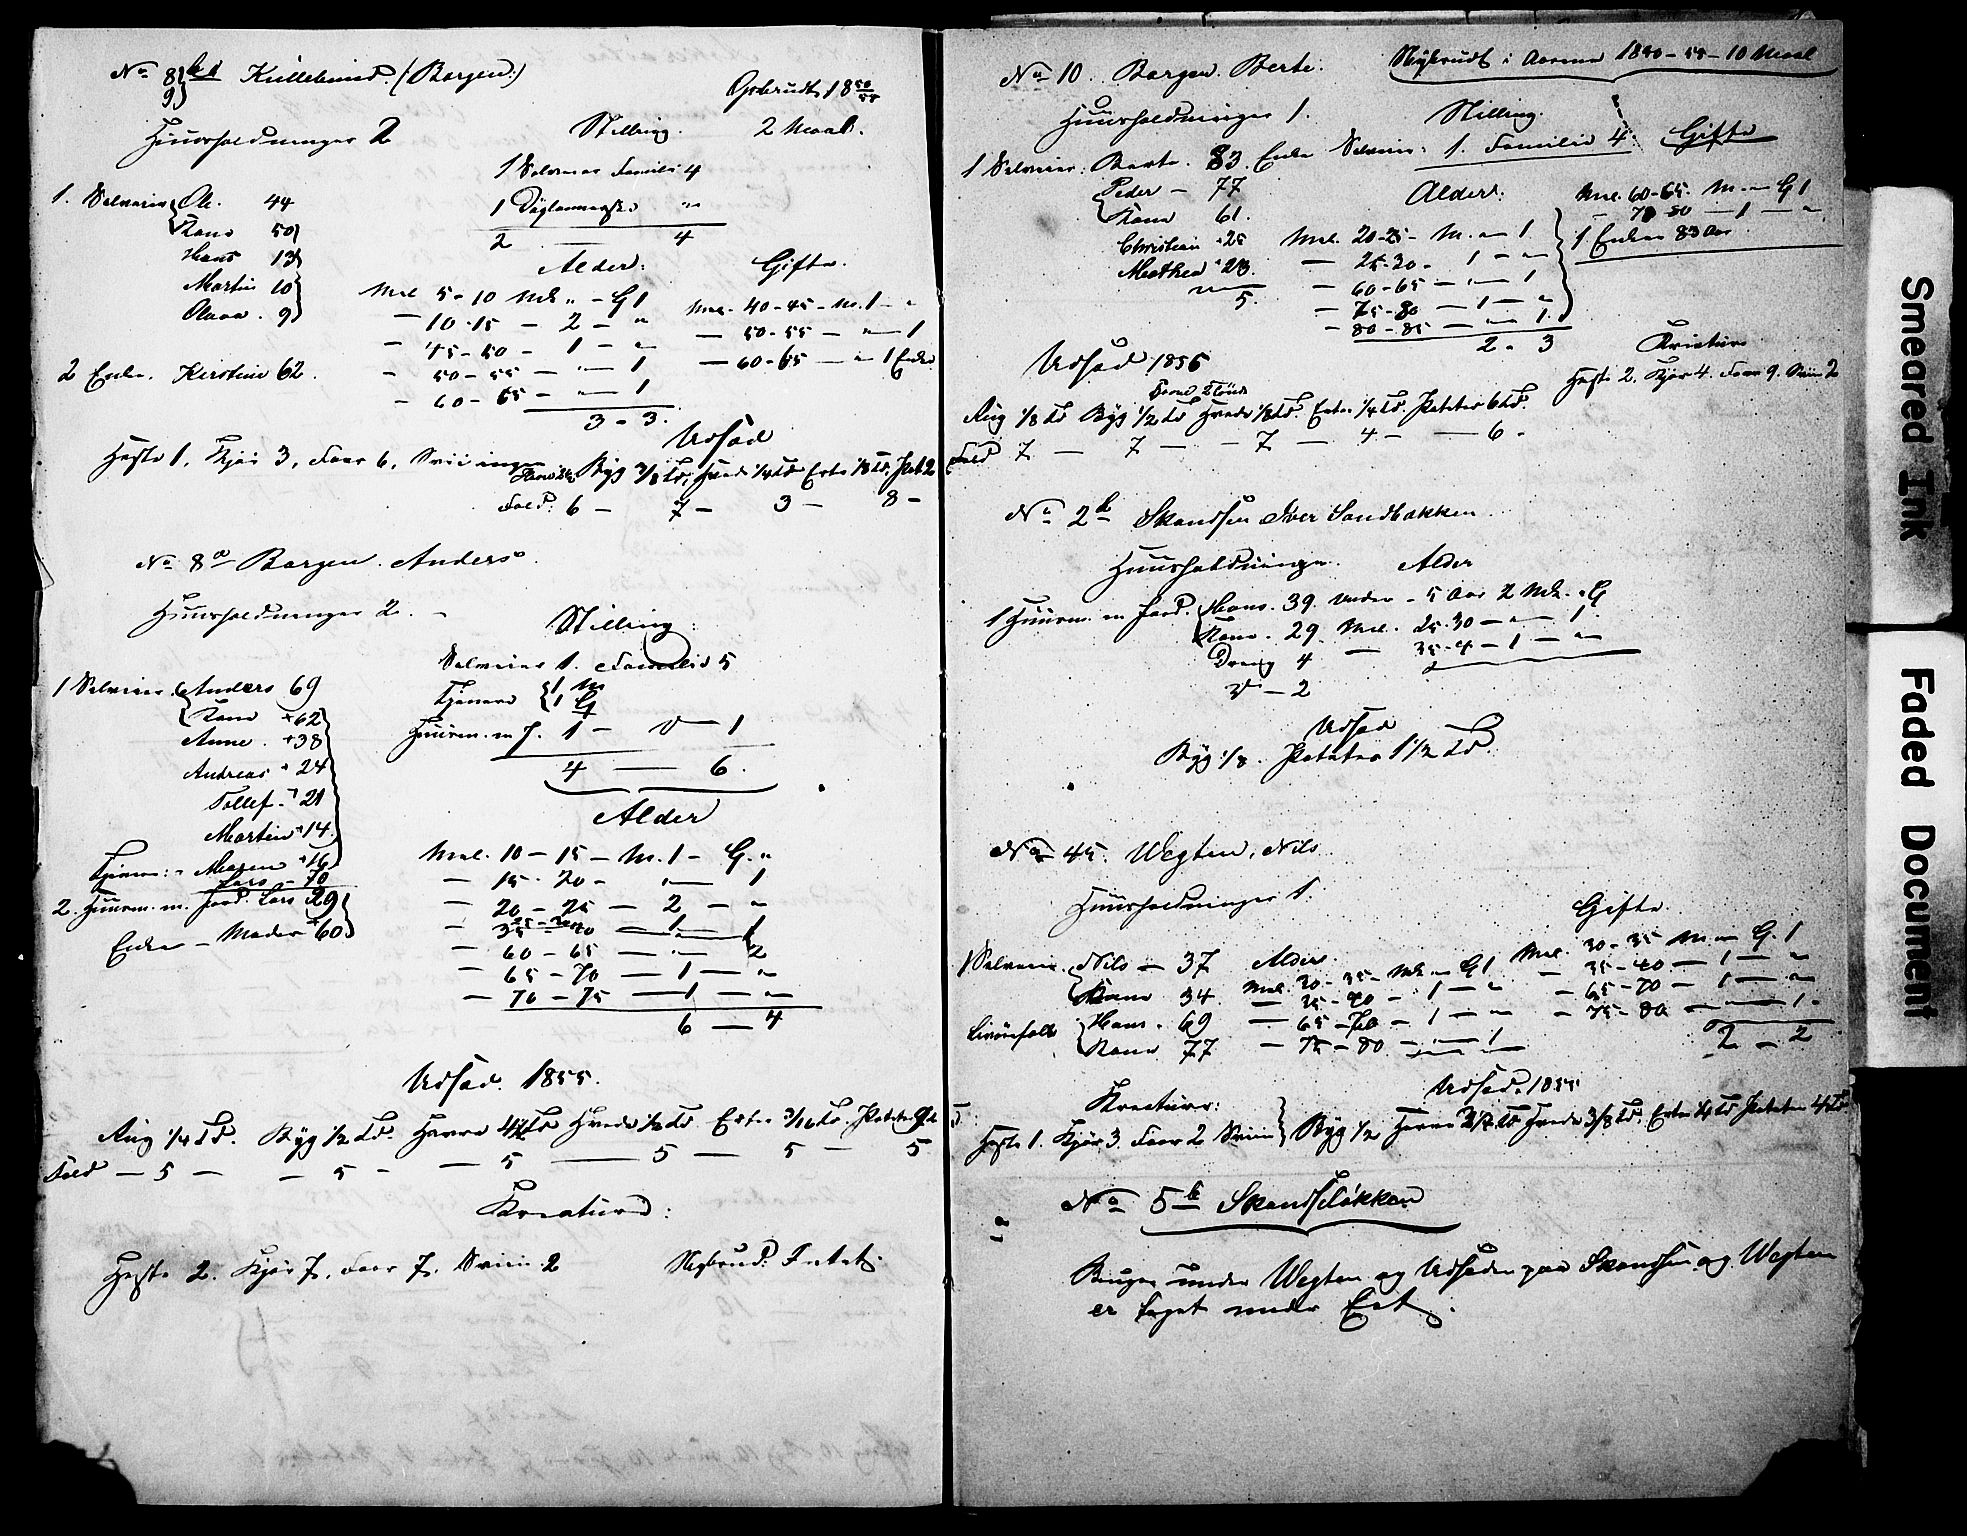 No 8 b 1 Kullebund. (Borgen)
9
Opbrudt 18 50/55
Huusholdninger 2
Stilling.
2 Maal.
1 Selveier Familie 4
1. Selveier Ole. 44
1 "
Kane 50
2 — 4
Hans 13
Alder:
Gifte.
Martin 10
Mel 5-10 Mk " - G 1
Mel. 40-45 - M. 1 - "
Anna. 9
— 10-15 - 2 - "
— 50-55 — " — 1
- 45-50 - 1 - "
— 60-65 — " 1 Enke
2 Enke. Kirstine 62.
- 50-55 - " — 1
- 60-65 - " — 1
3 - 3.
Udsæd
Heste 1, Kjør 3, Faar 6, Sviin ingen
Byg 3/8 Td, Hvede 1/4 Td Erter 1/8 Td. Pot 2
Fold. 6 — 7 — 3 — 8 —
No 8a Borgen. Anders.
Huusholdninger 2.
Stilling.
Selveier 1. Familie 5
1 Selveier Anders 69
Tjenere 1 M
1 G
Kane 62
Anne. 38
Huusm. m J. 1 - 1
Andreas 24
4 — 6.
Tollef. 21
Alder
Martin 14
Tjener: Maren 16
Mel. 10-15 - M. 1 - G. "
Lars - 70
— 15-20 - " — 1
2. Huusm. m. Jord. Lars 29
— 20-25 — 2 — "
Enke - Moder 60
— 35-40 — " — 1
— 60-65 — " 2
— 65-70 — 1 — "
— 70-75 — 1 — "
6 — 4
Udsæd. 1855.
Rug 1/4 Td. Byg 1/2 Td. Havre 4 1/2 Td Hvede 1/2 Td Erter 3/16 Td. Poteter 9 Td
Fold — 5 — 5 — 5 — 5 — 5 — 5
Kreature:
Heste 2. Kjør 7, Faar 7. Sviin 2
Nybrud. Intet.
No 10. Borgen. Berte.
Nybrudt i Aarene 1850-55-10 Maal
Huusholdninger 1.
Stilling.
1 Selveier. Berte. 83. Enke
Selveier: 1. Familie 4.
Gifte
Peder - 77
Alder:
Mel. 60-65. M. - G 1
Kane 61.
— 75-80 — 1 — "
Christian 25
Mel. 20-25 - M. - 1
1 Enke 83 Aar
Mathea 23.
— 25-30 - 1 - "
5.
— 60-65 — " — 1
— 75-80 — 1 — "
— 80-85 — " 1.
2 - 3
Udsæd 1855
Kreature
Heste 2. Kjør 4. Faar 9. Sviin 2
Havre 2 Tønde
Rug 1/8 Td Byg 1/2 Td Hvede 1/8 Td. Erter 1/4 Td. Poteter 6 Td.
Fold 7 — 7 — 7 — 4 — 6 -
No 2 b Skandsen Iver Sandbakken
Huusholdninger. Alder
1 Huusm. m Jord. Hans. 39. Under - 5 Aar 2 Mk. " G
Kane. 29 Mel. 25-30 — " — 1.
Dreng 4 — 35-4 - 1 — "
do — 2
Udsæd
Byg 1/8. Poteter 1 1/2 Td.
No 45. Wegten, Nils
Huusholdninger 1.
Gifte.
1 Selveier. Nils — 37 Alder.
Mel. 30-35 M - G. 1
Kane 34. Mel. 30-35 - Mk - G 1
— 35-40 — 1 — "
Hans. 69 — 35-40 - 1 - "
— 65-70 — 1 — "
Kane 77 — 65-70 - 1 - "
— 75-80 — " — 1.
— 75-80 - " — 1
2 - 2
Kreature:
Udsæd. 1855
Heste 1. Kjør 3. Faar 2 Sviin
Byg 1/2 Havre 3 1/2 Td Hvede 3/8 Td. Erter 1/4 Td Poteter 4 Td.
No 5 b Skandsløkken
Bruges under Wegten og Udsæden paa Skandsen og Wegten
er taget under Eet.
Smeared Ink
Faded Document